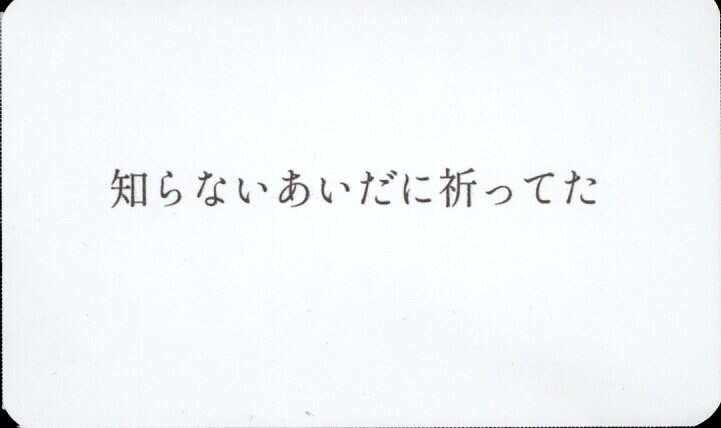 知らないあいだに祈ってた